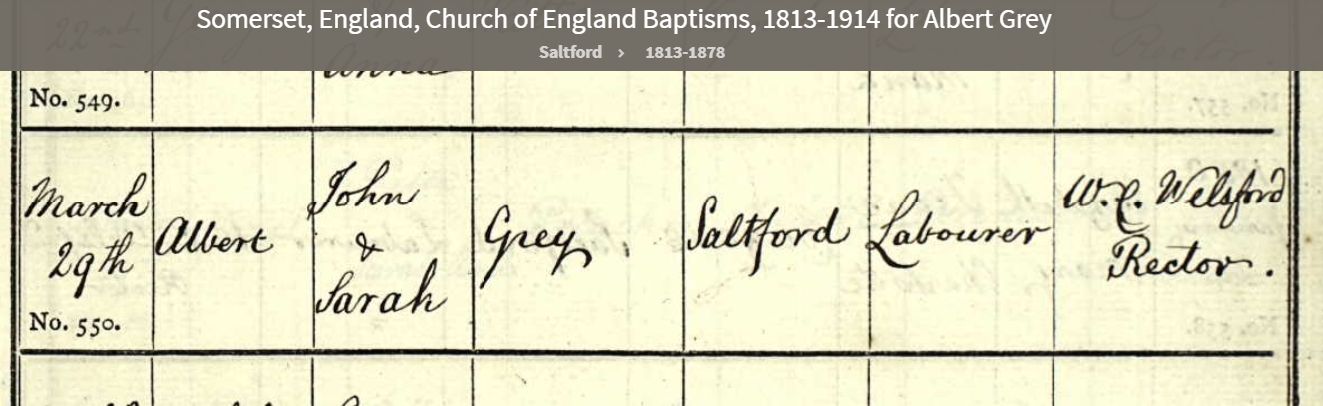 Somerset, England, Church of England Baptisms, 1813-1914 for Albert Grey
Saltford > 1813-1878
22nd
Anna
No. 549.
March 29th
No. 550.
Albert
John
&
Sarah
Grey
Saltford
Labourer
W. C. Welsford
Rector.